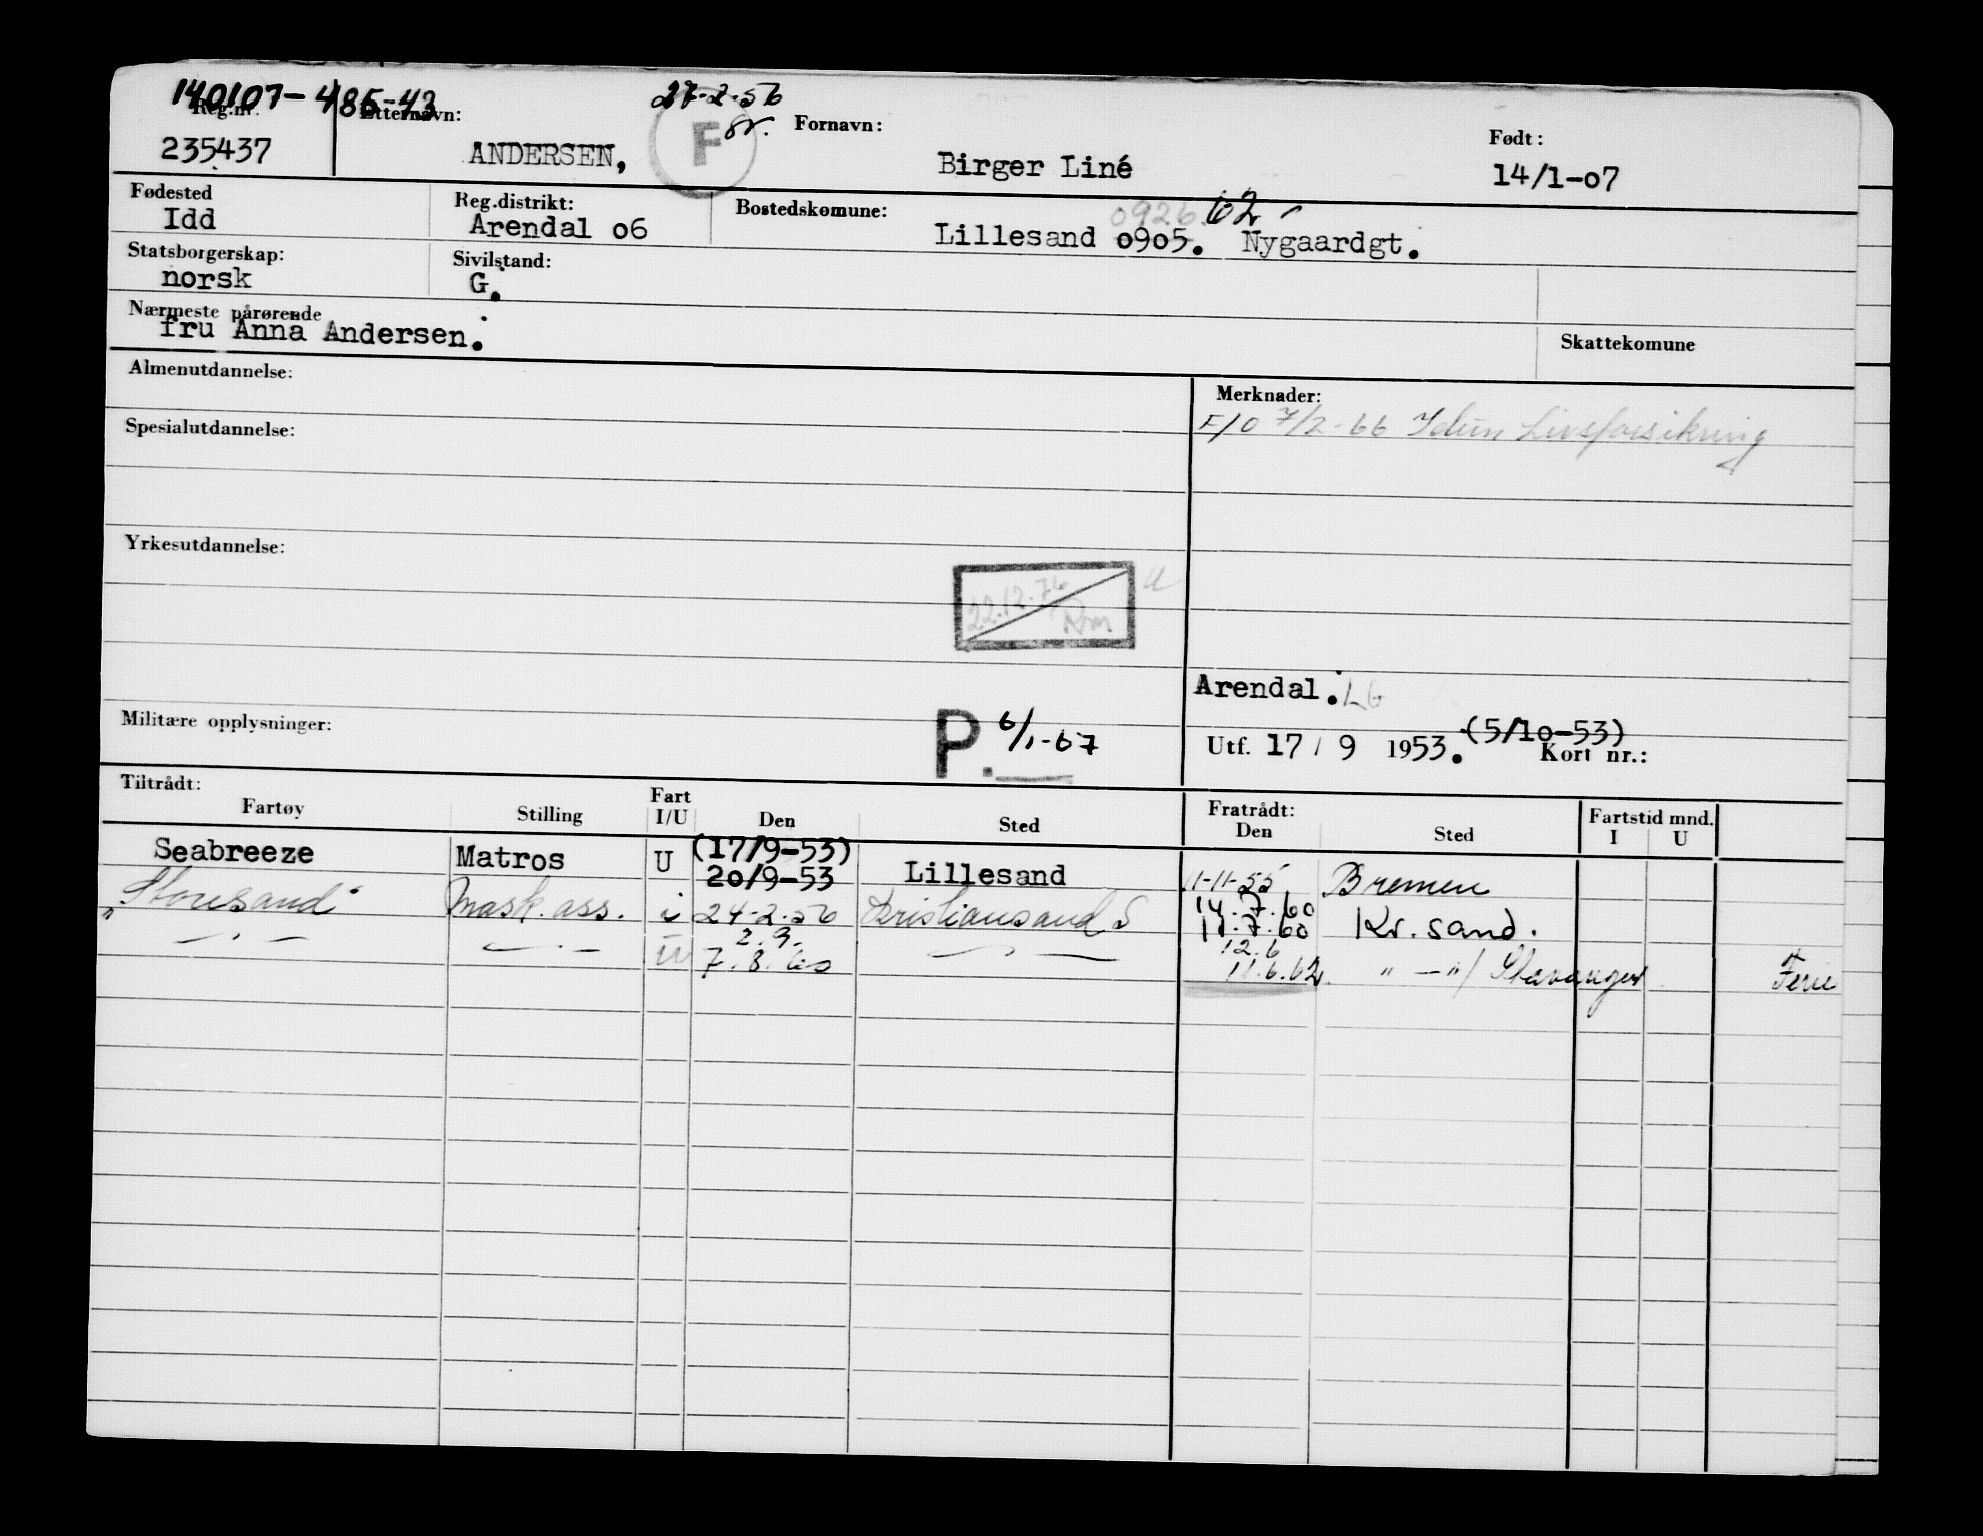 140107-485-43
27-2-56
Reg.nr. Etternavn: F Fornavn: Født:
235437 ANDERSEN, Birger Liné 14/1-07
Fødested Reg.distrikt: Bostedskomune: 0926. 62
Idd Arendal o6 Lillesand o9o5. Nygaardgt.
Statsborgerskap: Sivilstand:
norsk G.
Nærmeste pårørende
fru Anna Andersen. Skattekomune
Almenutdannelse: Merknader:
F/O 7/2-66 Idun Livsforsikring
Spesialutdannelse:
Yrkesutdannelse:
22.12.76
Arendal.
Militære opplysninger: P. 6/1-67 (5/1o-53)
Utf. 17 / 9 1953. Kort nr.:
Tiltrådt: Fart Fratrådt: Fartstid mnd.
Fartøy Stilling I/U Den Sted Den Sted I U
(17/9-53)
Seabreeze Matros U 20/9-53 Lillesand 11-11-55 Bremen
14.7.60
"Storesand" Mask.ass. i 24-2-56 Kristiansand S 11.7.60 Kr.sand.
2.9. 12.6
— " — — " — 7.8.60 — " — 11.6.62 " — " / Stavanger Ferie